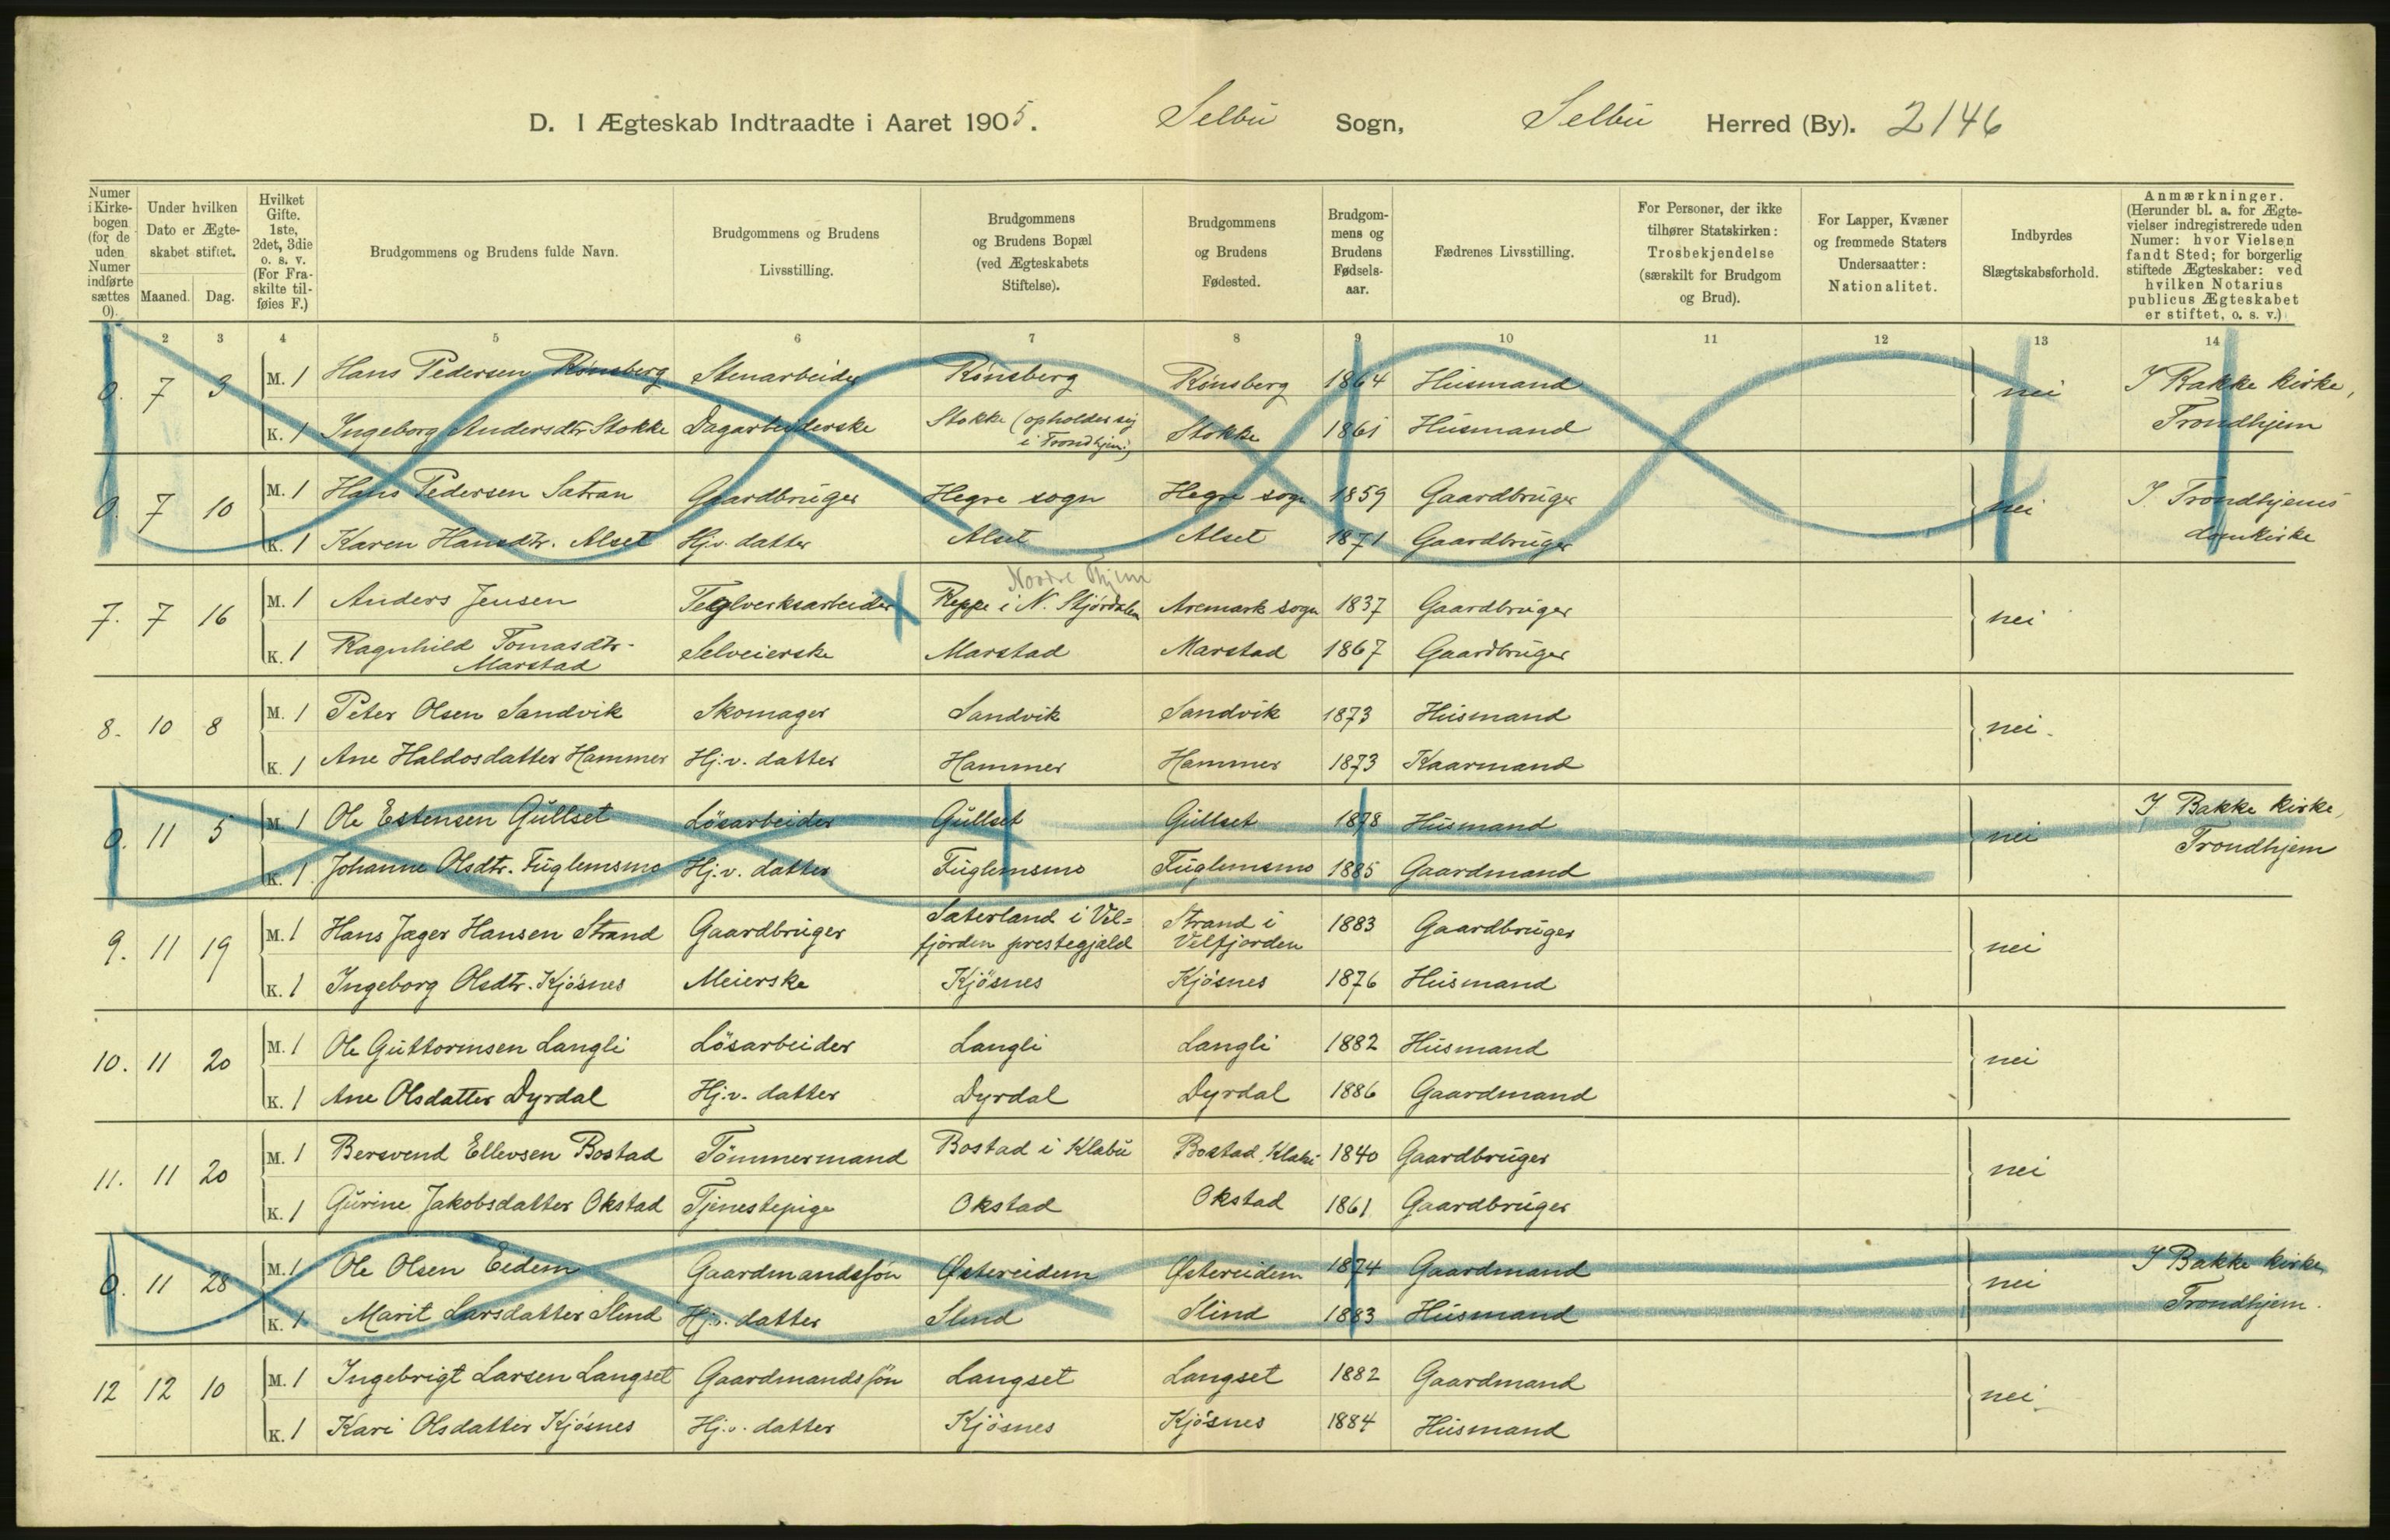 D. I Ægteskab Indtraadte i Aaret 1905. Selbu Sogn, Selbu Herred (By). 2146
Numer i Kirkebogen (for de uden Numer indførte sættes 0).
Under hvilken Dato er Ægteskabet stiftet.
Maaned. Dag.
Hvilket Gifte. 1ste, 2det, 3die o. s. v. (For Fraskilte tilføies F.)
Brudgommens og Brudens fulde Navn.
Brudgommens og Brudens Livsstilling.
Brudgommens og Brudens Bopæl (ved Ægteskabets Stiftelse).
Brudgommens og Brudens Fødested.
Brudgommens og Brudens Fødselsaar.
Fædrenes Livsstilling.
For Personer, der ikke tilhører Statskirken: Trosbekjendelse (særskilt for Brudgom og Brud).
For Lapper, Kvæner og fremmede Staters Undersaatter: Nationalitet.
Indbyrdes Slægtskabsforhold.
Anmærkninger. (Herunder bl. a. for Ægtevielser indregistrerede uden Numer: hvor Vielsen fandt Sted; for borgerlig stiftede Ægteskaber: ved hvilken Notarius publicus Ægteskabet er stiftet, o. s. v.)
2 3 4 5 6 7 8 9 10 11 12 13 14
0. 7 3 M. 1 Hans Pedersen Rønsberg Stenarbeider Rønsberg Rønsberg 1864 Husmand nei I Bakke kirke,
K. 1 Ingeborg Andersdtr Stokke Dagarbeiderske Stokke (opholder sig i Trondhjem) Stokke 1861 Husmand Trondhjem
0. 7 10 M. 1 Hans Pedersen Satran Gaardbruger Hegre sogn Hegre sogn 1859 Gaardbruger nei I. Trondhjems
K. 1 Karen Hansdtr. Alset Hj.v. datter Alset Alset 1871 Gaardbruger domkirke
Nordre Thjem
7. 7 16 M. 1 Anders Jensen Teglverksarbeider Reppe i N. Stjørdalen Aremark sogn 1837 Gaardbruger nei
K. 1 Ragnhild Tomasdtr. Marstad Selveierske Marstad Marstad 1867 Gaardbruger
8. 10 8 M. 1 Peter Olsen Sandvik Skomager Sandvik Sandvik 1873 Husmand nei.
K. 1 Ane Haldosdatter Hammer Hj.v. datter Hammer Hammer 1873 Kaarmand
0. 11 5 M. 1 Ole Estensen Gullset Lösarbeider Gullset Gullset 1878 Husmand nei I Bakke kirke,
K. 1 Johanne Olsdtr. Fuglemsmo Hj.v. datter Fuglemsmo Fuglemsmo 1885 Gaardmand Trondhjem
9. 11 19 M. 1 Hans Jager Hansen Strand Gaardbruger Sæterland i Vel=fjorden prestegjæld Strand i Velfjorden 1883 Gaardbruger nei
K. 1 Ingeborg Olsdtr. Kjösnes Meierske Kjösnes Kjösnes 1876 Husmand
10. 11 20 M. 1 Ole Guttormsen Langli Lösarbeider Langli Langli 1882 Husmand nei
K. 1 Ane Olsdatter Dyrdal Hj.v. datter Dyrdal Dyrdal 1886 Gaardmand
11. 11 20 M. 1 Bersvend Ellevsen Bostad Tömmermand Bostad i Klabu Bostad Klabu 1840 Gaardbruger nei
K. 1 Gurine Jakobsdatter Okstad Tjenestepige Okstad Okstad 1861 Gaardbruger
0. 11 28 M. 1 Ole Olsen Eidem Gaardmandssön Østereidem Østereidem 1874 Gaardmand nei I Bakke kirke,
K. 1 Marit Larsdatter Slind Hj.v. datter Slind Slind 1883 Husmand Trondhjem.
12 12 10 M. 1 Ingebrigt Larsen Langset Gaardmandssön Langset Langset 1882 Gaardmand nei.
K. 1 Kari Olsdatter Kjösnes Hj.v. datter Kjösnes Kjösnes 1884 Husmand